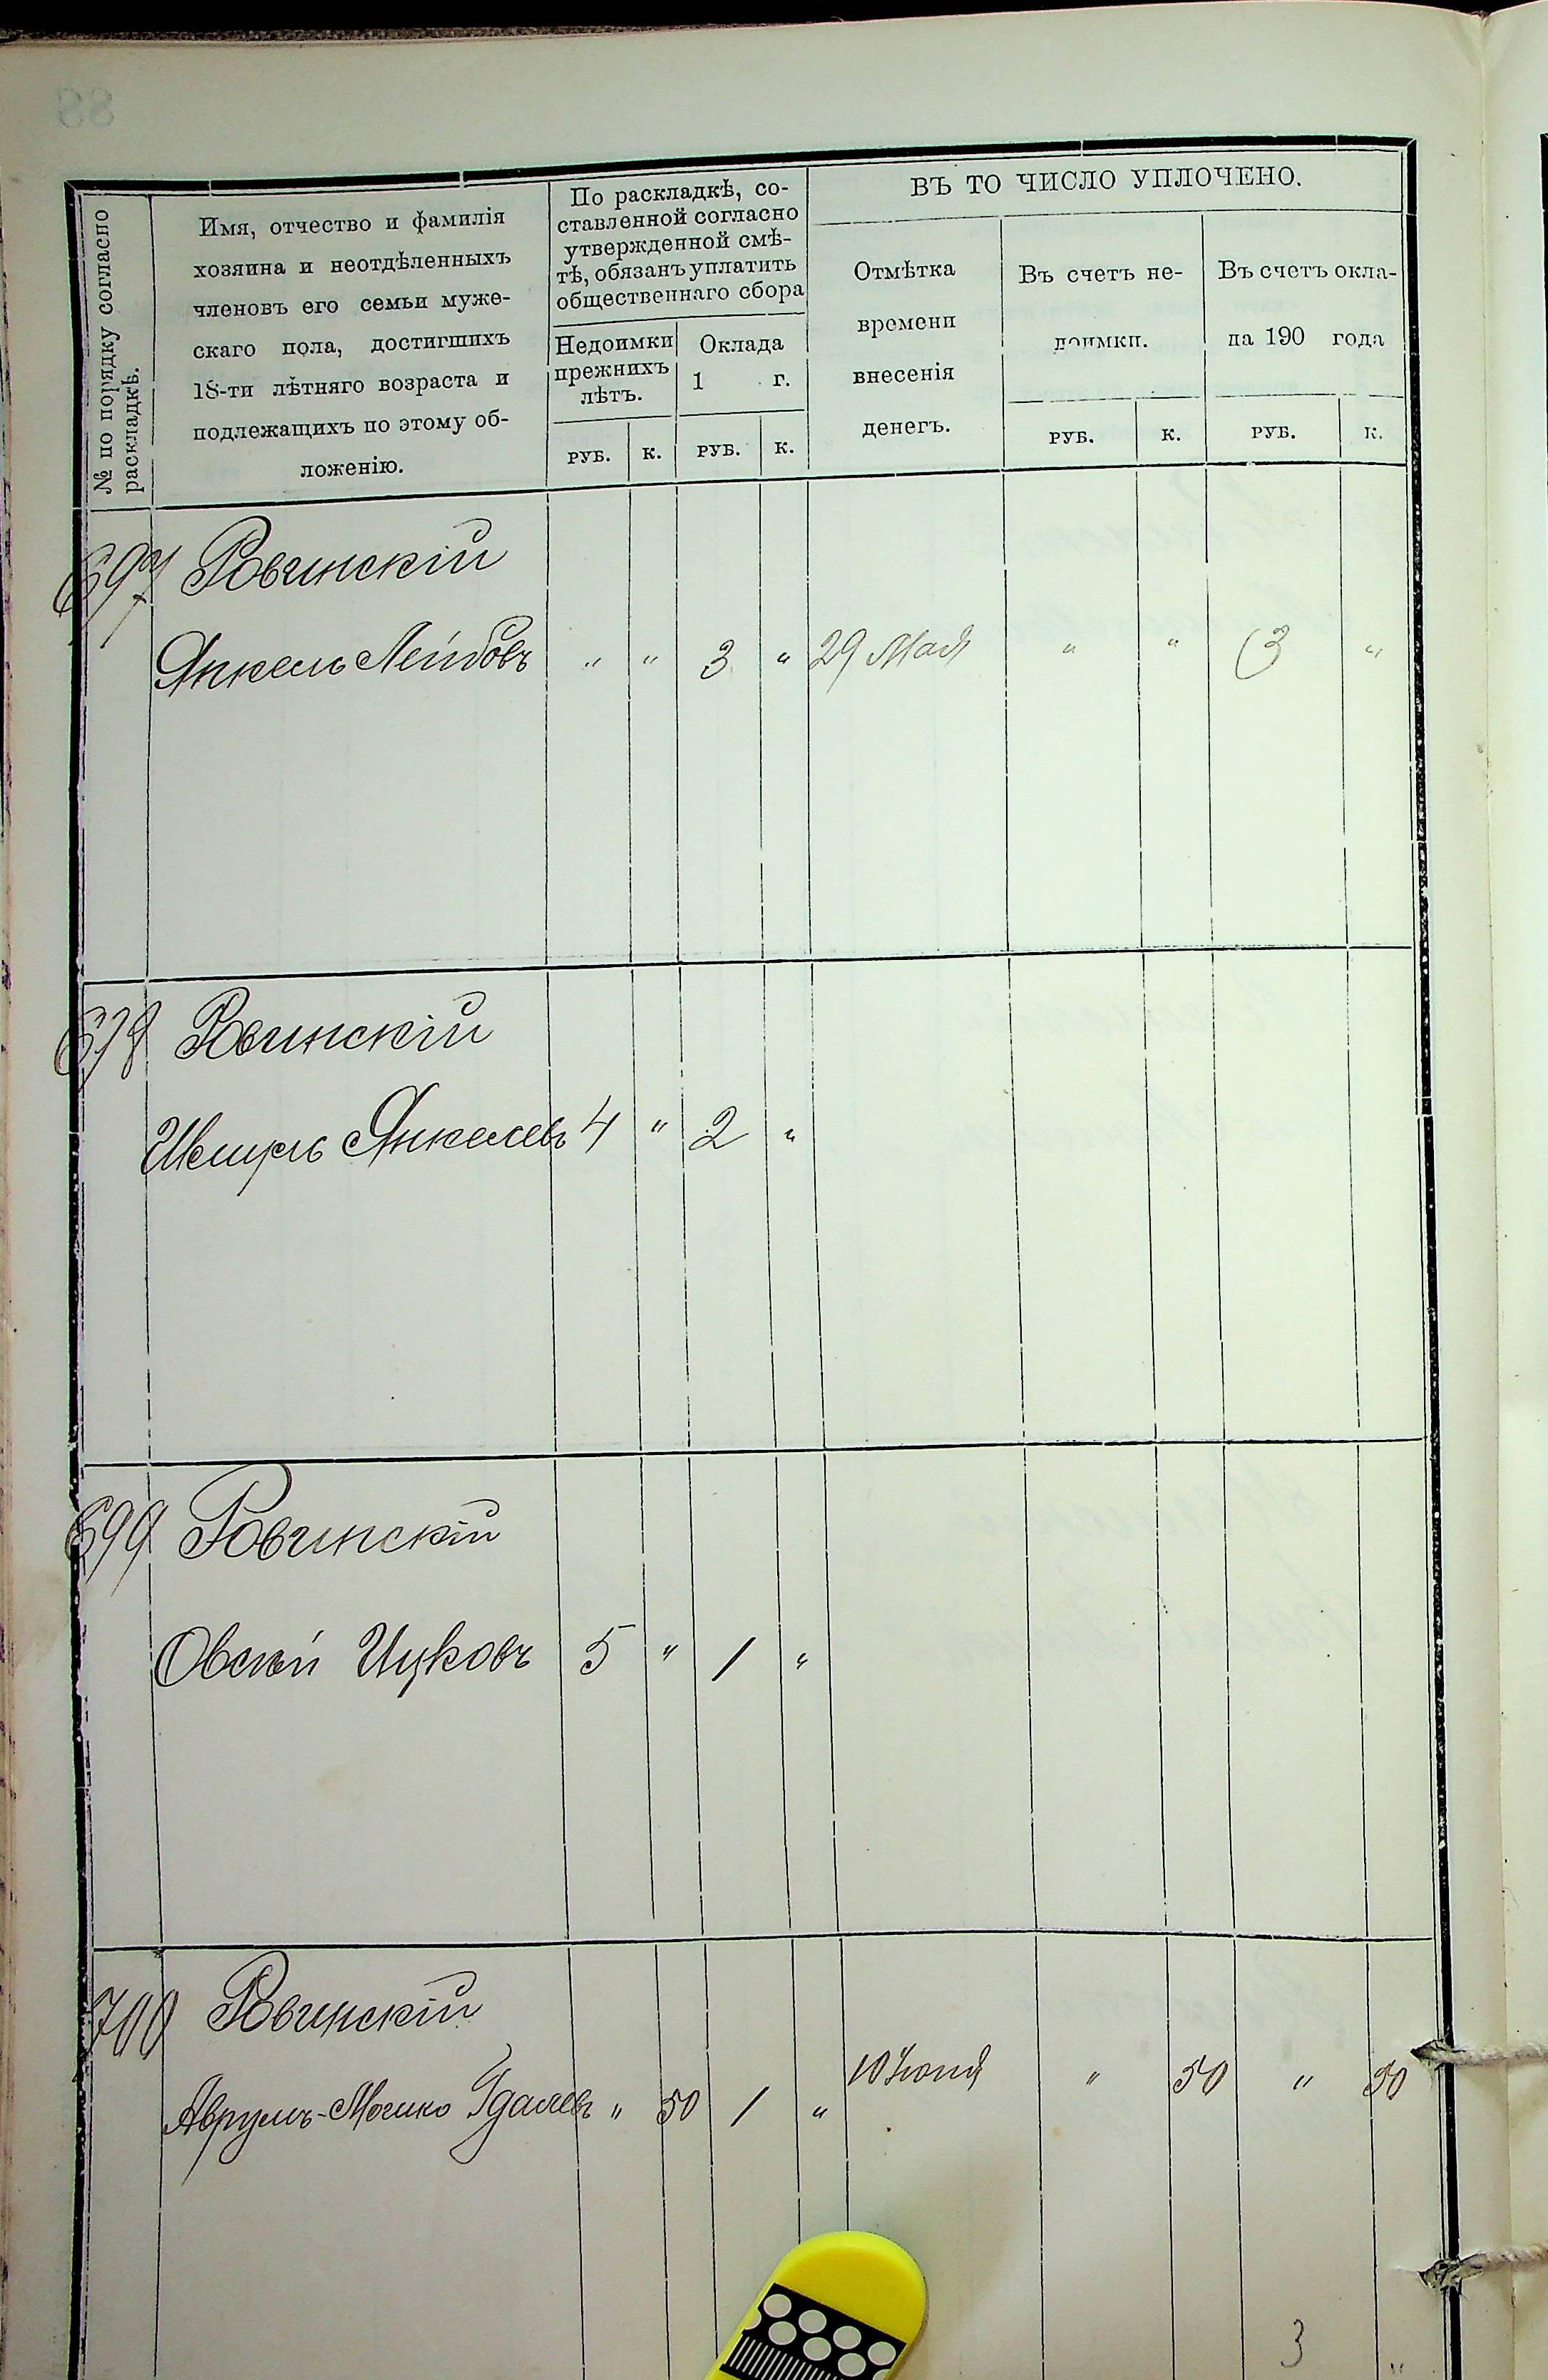 № по порядку согласно
раскладкѣ.
Имя, отчество и фамилія
хозяина и неотдѣленныхъ
членовъ его семьи муже-
скаго пола, достигшихъ
18-ти лѣтняго возраста и
подлежащихъ по этому об-
ложенію.
По раскладкѣ, со-
ставленной согласно
утвержденной смѣ-
тѣ, обязанъ уплатить
общественнаго сбора
Недоимки
прежнихъ
лѣтъ.
Оклада
1 г.
РУБ. К. РУБ. К.
ВЪ ТО ЧИСЛО УПЛОЧЕНО.
Отмѣтка
времени
внесенія
денегъ.
Въ счетъ не-
доимки.
Въ счетъ окла-
да 190 года
РУБ. К. РУБ. К.
697 Ровинскій
Янкель Лейбовъ " " 3 " 29 Мая " " 3 "
698 Ровинскій
Янкелевъ 4 " 2 "
699 Ровинскій
Овсѣй Ицковъ 5 " 1 "
700 Ровинскій
Аврумъ-Мошко Гдалевъ " 50 1 " 10 Іюня " 50 " 50
3 "